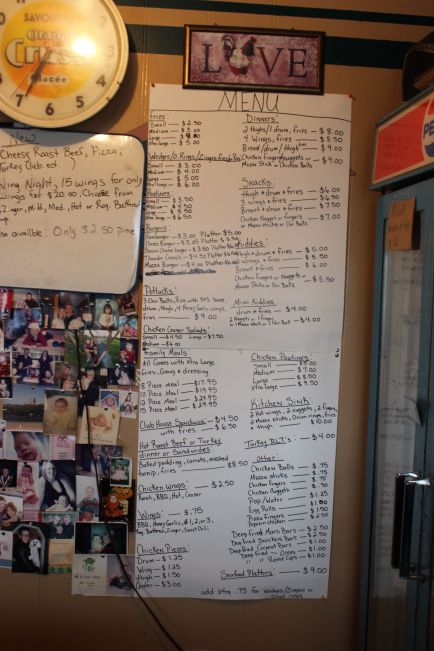 SAVOUREZ
Orange
Crush
glacée
LOVE
PEPSI
New
Cheesy Roast Beef, Pizza,
Turkey Club ect. :)
Wing Night, 15 wings for only
wings for $20.00, Choose from
Zinger, Mild, Med, Hot or Reg. Battered
Also availble: Only $2.50
MENU
Fries:
Small — $2.50
Medium — $3.00
Large
Xtra large — $5.00
Wedges/O Rings/Zingers
Small — $3.00
Medium — $4.00
Large — $5.00
Xtra large — $6.00
Poutines:
Small — $3.50
Medium — $4.50
Large
Xtra large — $6.50
Burgers:
Hamburger — $3.00 Platter $5.00
Cheese Burger — $3.25 Platter
Bacon Cheese burger — $3.50 Platter
Thunder Crunch — $4.50 Platter
Mozza Burger — $4.00 Platter
Potlucks:
3 Chix Balls, Rice with S+S Sauce,
drum, thigh, 4 Honey Garlic wings,
$9.00
Chicken Caesar Salads:
Small — $4.50 Large — $7.50
Medium — $6.00
Family Meals:
All Comes with Xtra Large
Fries, Gravy + dressing
8 Piece meal — $17.95
10 Piece Meal — $19.95
12 Piece Meal — $24.95
15 Piece Meal — $29.95
Club House Sandwich — $4.50
with fries — $6.50
Hot Roast Beef or Turkey
dinner or Sandwiches:
Baked pudding, carrots, mashed
turnip, fries — $8.50
Chicken Wraps: — $2.50
Ranch, BBQ, Hot, Caesar
Wings: — $.75
BBQ, Honey Garlic, #1, 2, or 3,
Reg. Battered, Zinger, Sweet Chili
Chicken Pieces:
Drum — $1.25
Wing — $1.25
thigh — $1.50
Center — $3.00
Dinners:
2 thighs/1 drum, fries — $8.00
4 Wings, fries — $8.50
Breast/drum/thigh — $9.00
Chicken fingers/nuggets or — $9.00
Mozza Stick or Chicken Balls
Snacks:
thigh + drum + fries — $6.00
3 wings + fries — $6.50
Breast + drum + fries — $7.50
Chicken Nugget or fingers — $7.00
or Mozza Sticks or Chix Balls
Kiddies:
thigh + drum + fries — $5.00
wings + fries — $5.00
Breast + fries — $6.00
Chicken fingers or Nuggets or
Mozza Sticks or Chix Balls — $5.50
Mini Kiddies:
drum + fries — $4.00
2 Nuggets or 1 finger
or 1 Mozza stick or 1 Chix Ball — $4.00
Chicken Poutines:
Small
Medium — $7.00
Large — $8.00
Xtra large — $9.50
Kitchen Sink:
2 Hot wings, 2 nuggets, 2 fingers,
2 Mozza sticks, Onion rings, fries
+ thigh — $10.00
Turkey BLT's: — $4.00
Other:
Chicken Balls — $.75
Mozza Sticks — $.75
Chicken fingers — $.75
Chicken Nuggets — $.50
Pop/Water — $1.25
Egg Rolls — $1.00
Pizza fingers — $1.50
Popcorn chicken — $2.50
Deep fried Mars Bars — $2.50
Deep fried Snickers Bars — $2.50
Deep fried Coconut Bars — $1.00
Deep fried — Oreos — $1.00
" " Reese Cups — $1.00
Seafood Platters: — $9.00
add xtra .75 for Wedges/Zingers or
Onion rings